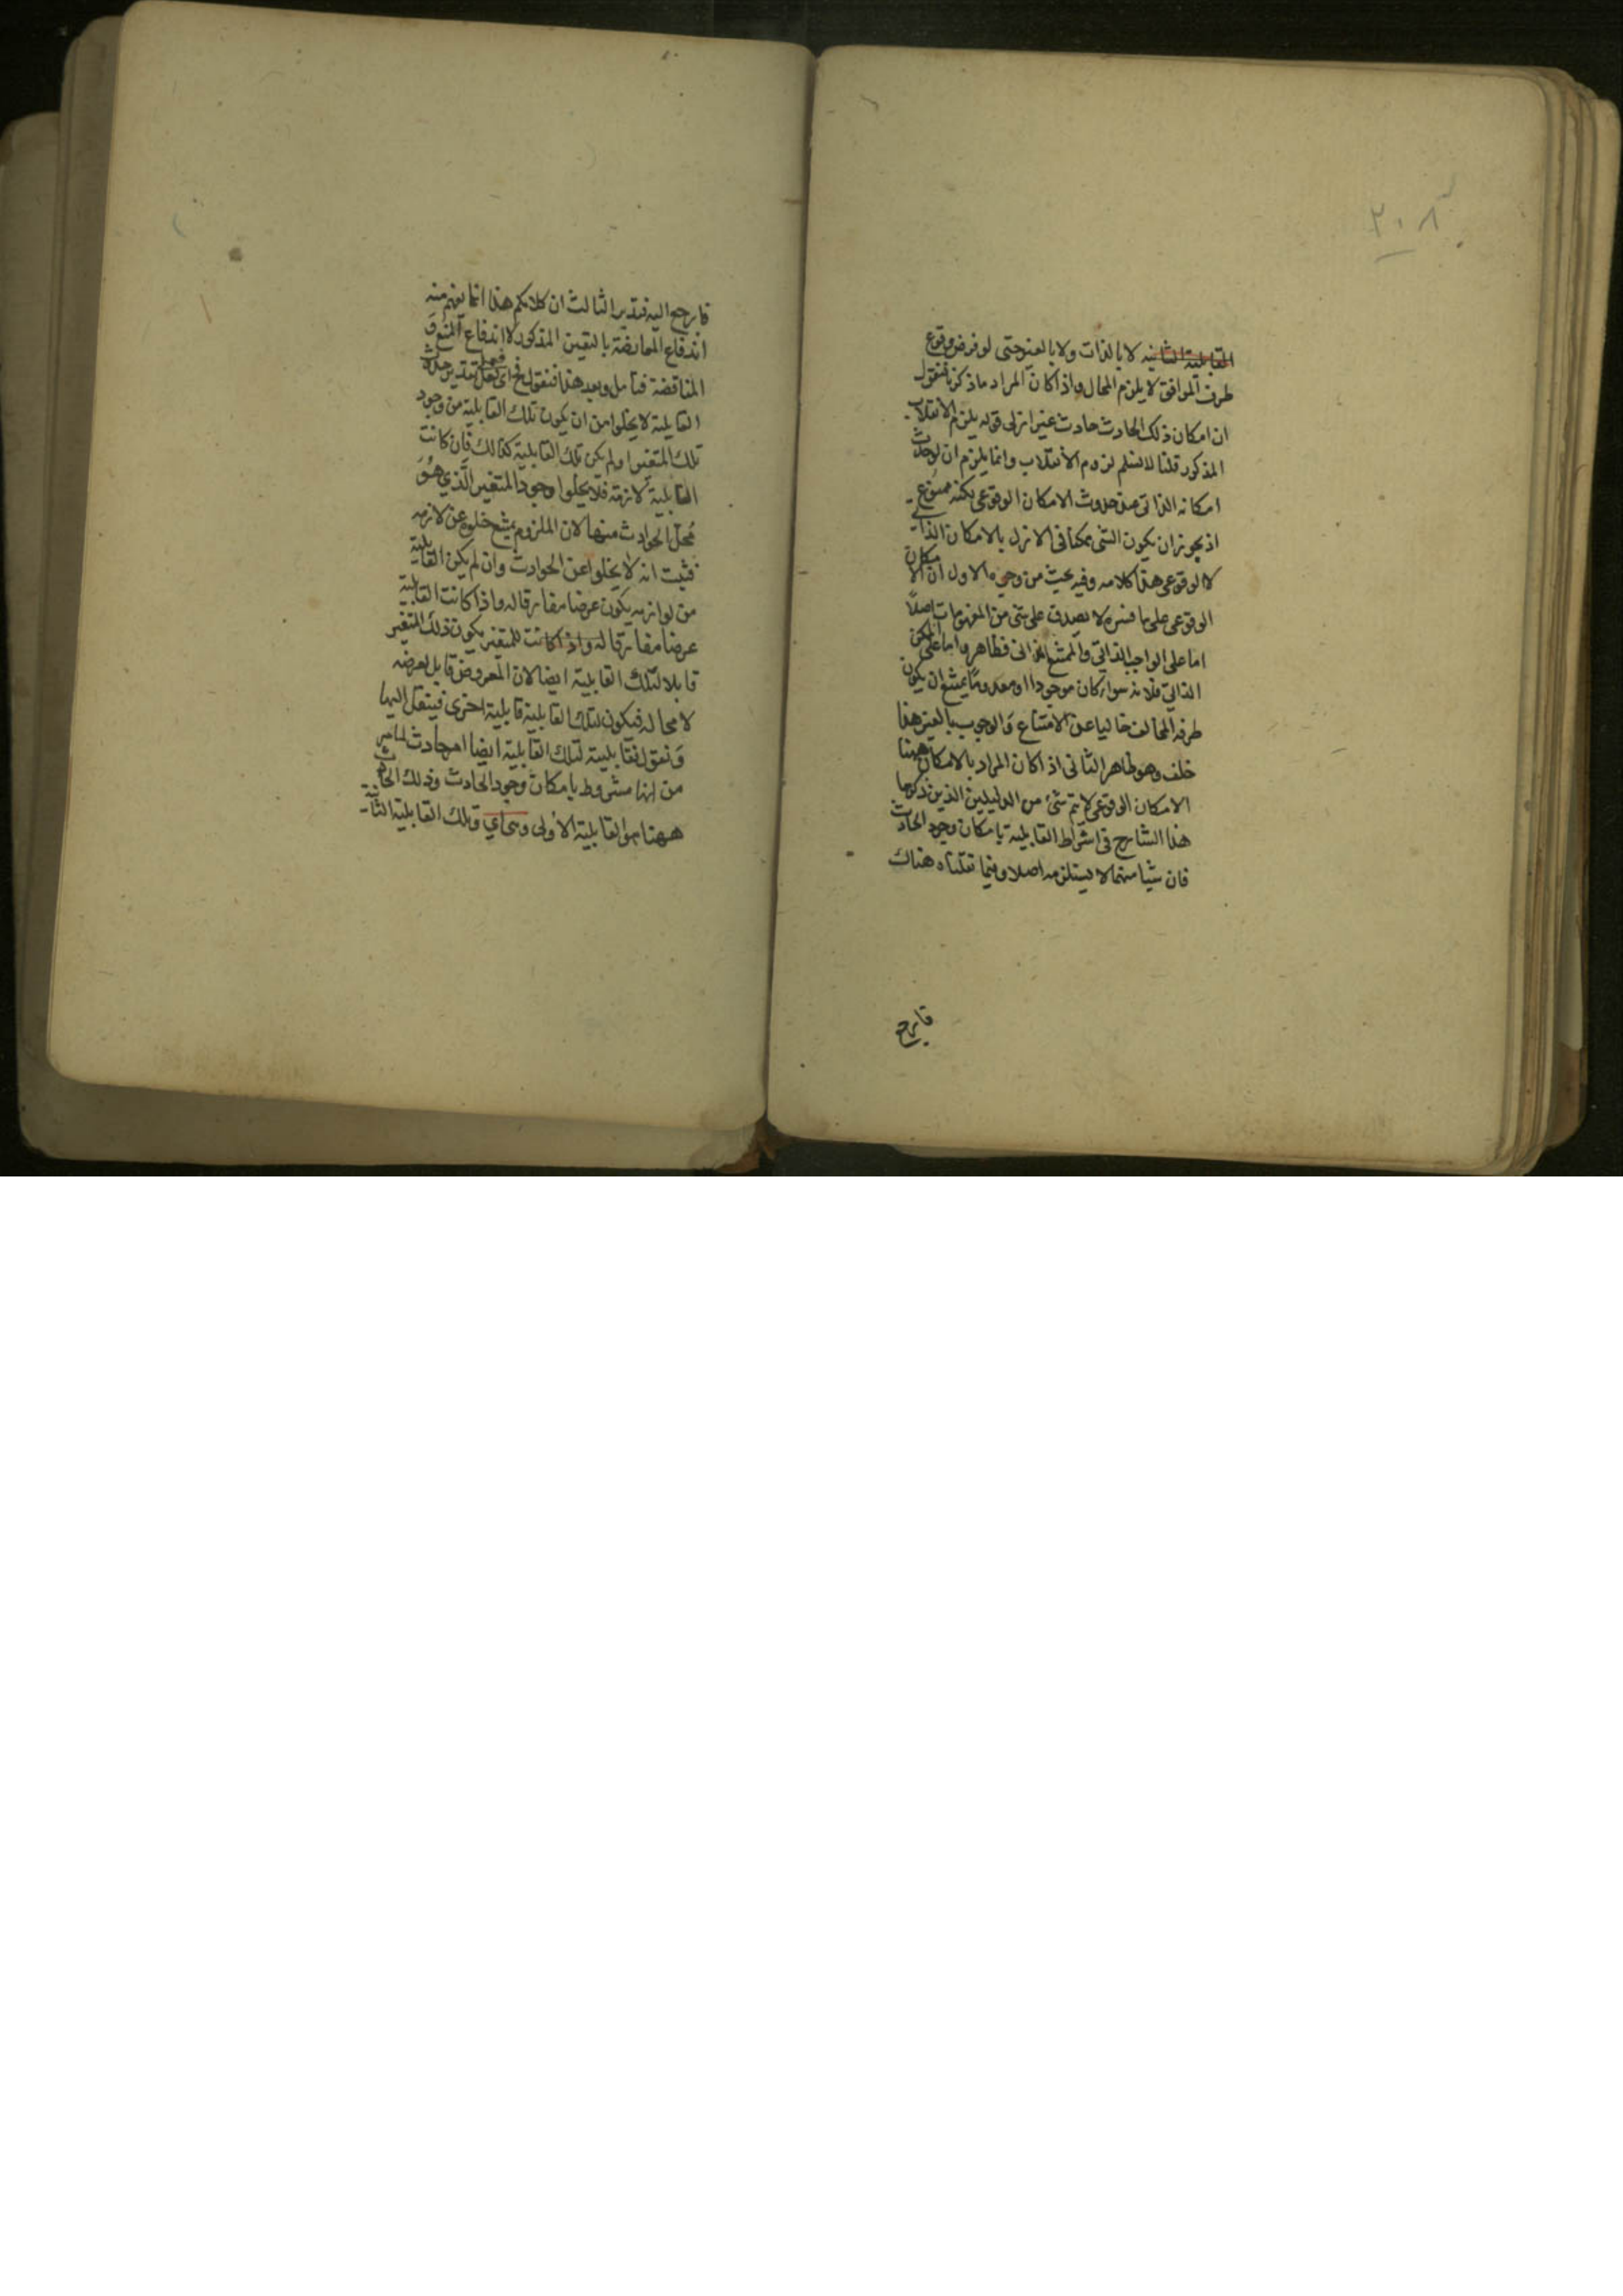 ٢٠٨
القابلية الثانيه لا بالذات ولا بالغير حتى لو فرض وقوع
طرف الموافق لا يلزم المحال واذا كان المراد ما ذكرنا فنقول
ان امكان ذلك الحادث حادث غير ازلى قوله يلزم الانقلاب
المذكور قلنا لا نسلم لزوم الانقلاب وانما يلزم ان لو حدث
امكانه الذاتى عند حدوث الامكان الوقوعى لكنه ممنوع
اذ يجوز ان يكون الشى ممكنا فى الازل بالامكان الذاتى
لا الوقوعى هذا كلامه وفيه بحث من وجوه الاول ان الامكان
الوقوعى على ما فسره لا يصدق على شى من المفهومات اصلاً
اما على الواجب الذاتى والممتنع الذاتى فظاهر واما على الممكن
الذاتى فلانه سواء كان موجودا او معدوما يمتنع ان يكون
طرفه المخالف خاليا عن الامتناع والوجوب بالغير هذا
خلف وهو ظاهر الثانى اذا كان المراد بالامكان ههنا
الامكان الوقوعى لا يتم شئ من الدليلين الذين ذكرهما
هذا الشارح فى اشتراط القابلية بامكان وجود الحادث
فان شيا منهما لا يستلزمه اصلا وفيما نقلناه هناك
فارجع
فارجع اليه فتدبر الثالث ان كلامكم هذا انما يفهم منه
اندفاع المعارضة بالتغيير المذكور لا اندفاع المنع و
المناقضة فتامل وبعد هذا فنقول فح اى فعلى تقدير حدوث
القابلية لا يخلوا من ان يكون تلك القابلية من وجود
تلك المتغير او لم يكن تلك القابلية كذلك فان كانت
القابلية لازمة فلا يخلوا وجود المتغير الذي هو
محل الحوادث منها لان الملزوم يمتنع خلوه عن لازمه
فثبت انه لا يخلوا عن الحوادث وان لم يكن القابلية
من لوازمه يكون عرضا مفارقا له واذا كانت القابلية
عرضا مفارقا له واذا كانت للمتغير يكون ذلك المتغير
قابلا لتلك القابلية ايضا لان المعروض قابل لعرضه
لا محاله فيكون لتلك القابلية قابلية اخرى فينتقل اليها
ونقول فقابليته لتلك القابلية ايضا امر حادث لما مر
من انها مشروط بامكان وجود الحادث وذلك الحادث
ههنا هو القابلية الاولى وهى اي وتلك القابلية الثانية